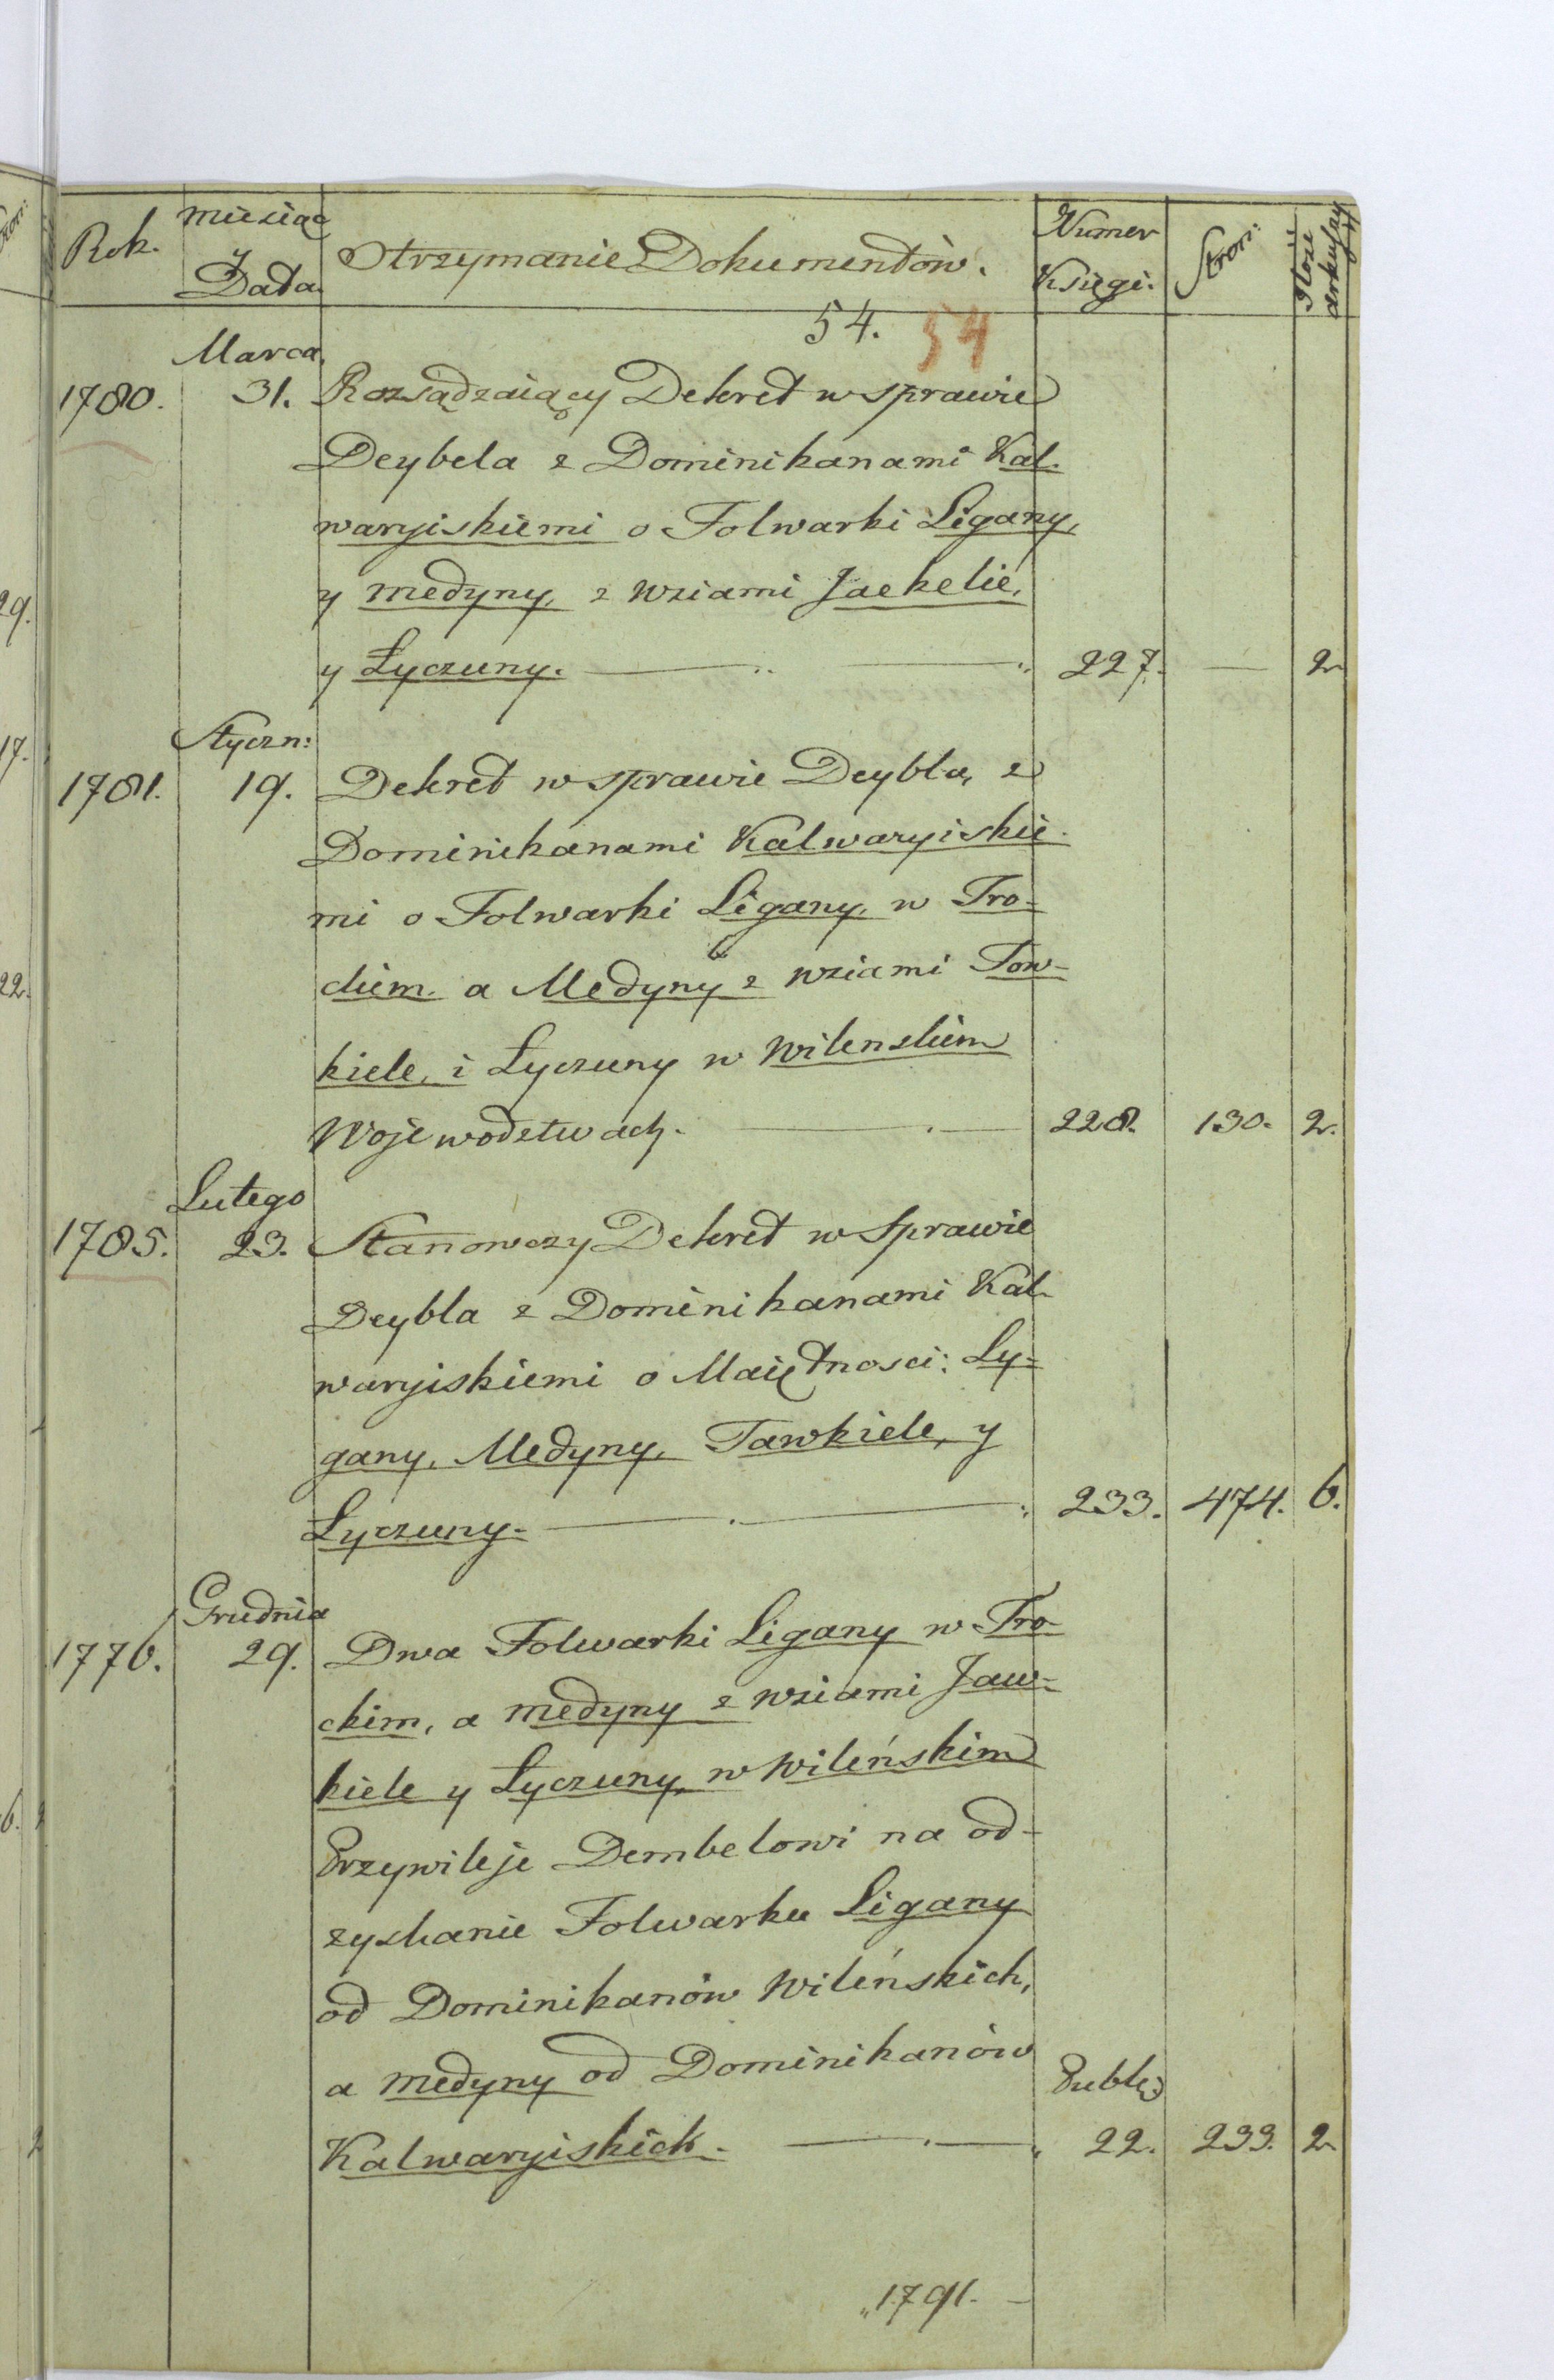 Rok. miesiąc y Data. Otrzymanie Dokumentów. Numer Księgi. Stron: Ilość arkuszy
54. 54
Marca
1780. 31. Rozsądzaiący Dekret w sprawie
Deybela z Dominikanami Kal-
waryiskiemi o Folwarki Ligany,
y medyny, z wsiami Jaekelie,
y Łyczuny. 227. — 2
Styczn:
1781. 19. Dekret w sprawie Deybla, z
Dominikanami Kalwaryiskie-
mi o Folwarki Ligany, w Tro-
ckiem. a Medyny z wsiami Tow-
kiele, i Łyczuny w Wilenskiem
Wojewodztwach. 228. 130. 2.
Lutego
1785. 23. Stanowczy Dekret w Sprawie
Deybla z Dominikanami Kal-
waryiskiemi o Maiętnosci: Ly-
gany, Medyny, Tawkiele, y
Łyczuny. 233. 474. 6.
Grudnia
1776. 29. Dwa Folwarki Ligany w Tro-
ckim, a medyny z wsiami Jaw-
kiele y Łyczuny, w Wileńskim
Przywileje Dembelowi na od-
zyskanie Folwarku Ligany
od Dominikanów Wileńskich,
a medyny od Dominikanów
Kalwaryiskich. 22. 233. 2
1791.